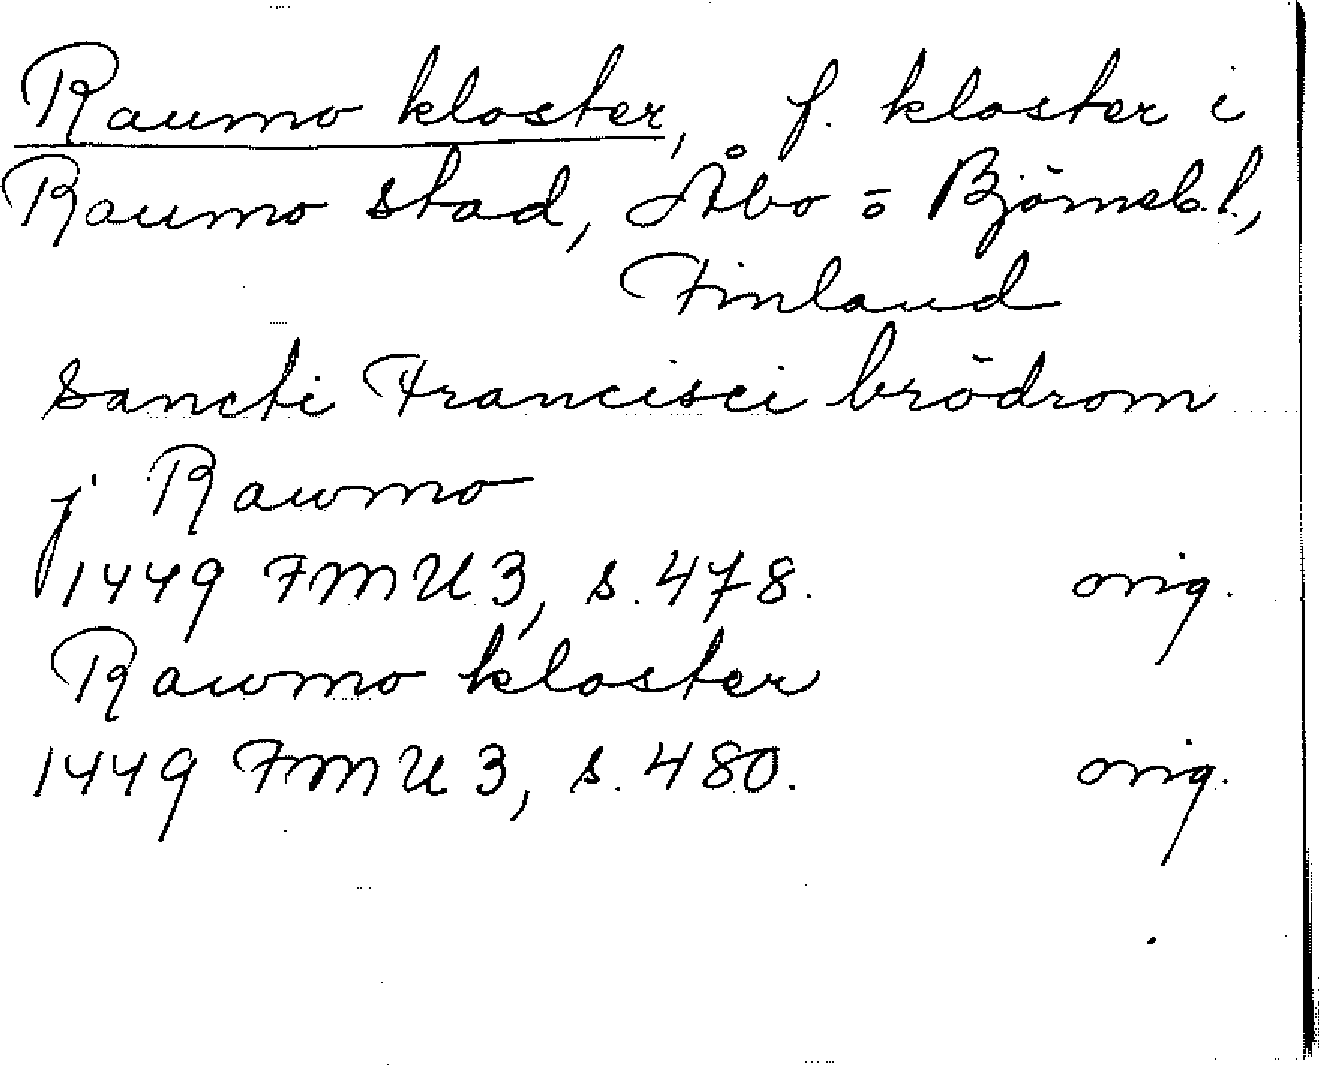 Raumo kloster, f. kloster i
Raumo stad, Åbo o Björneb. l.,
Finland
sancti Francisci brödrom
j Rawmo
1449 FMU 3, s. 478. orig.
Rawmo kloster
1449 FMU 3, s. 480. orig.